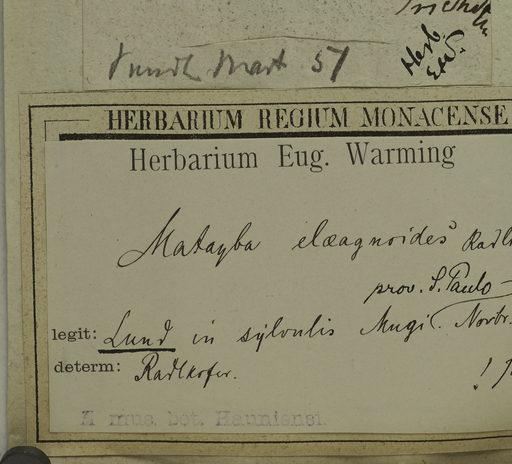 Herb.
HERBARIUM REGIUM MONACENSE
Herbarium Eug. Warming
Matayba elæagnoides Radl
prov. S. Paulo –
legit: Lund in sylvulis Mugi. Novbr.
determ: Radlkofer.
E mus. bot. Hauniensi.